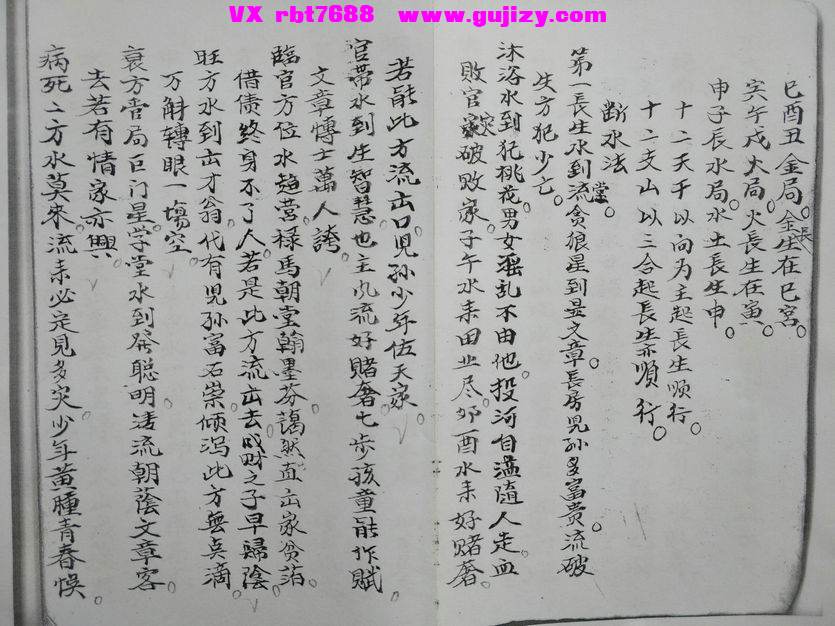 VX rbt7688 www.gujizy.com
巳酉丑金局。金長生在巳宮。
寅午戌火局。火長生在寅。
申子辰水局。水土長生申。
十二天干以向为主起長生順行。
十二支山以三合起長生示順行。
断水法
第一長生水到流貪狼星到显文章。長房児孫多富贵。流破
生方犯少亡。
沐浴水到犯桃花。男女淫乱不由他。投河自溢随人走。血
敗官灾破敗家。子午水耒田业尽。卯酉水耒好賭奢。
若能此方流出口児孫少年伍天家。
官帶水到生智慧也主风流好賭奢。七歩孩童能作赋
文章博士萬人誇。
臨官方位水趋营。禄馬朝堂翰墨芬。藹然直出家贫泊
借债終身不了人。若是此方流出去成财之子早歸陰。
旺方水到出才翁。代有児孫富石崇。倾泻此方無点滴
万斛轉眼一塲空。
衰方官局巨门星。学堂水到發聪明。湋流朝蔭文章客
去若有情家亦興。
病死二方水莫来。流耒必定見多灾。少年黄腫青春悞。